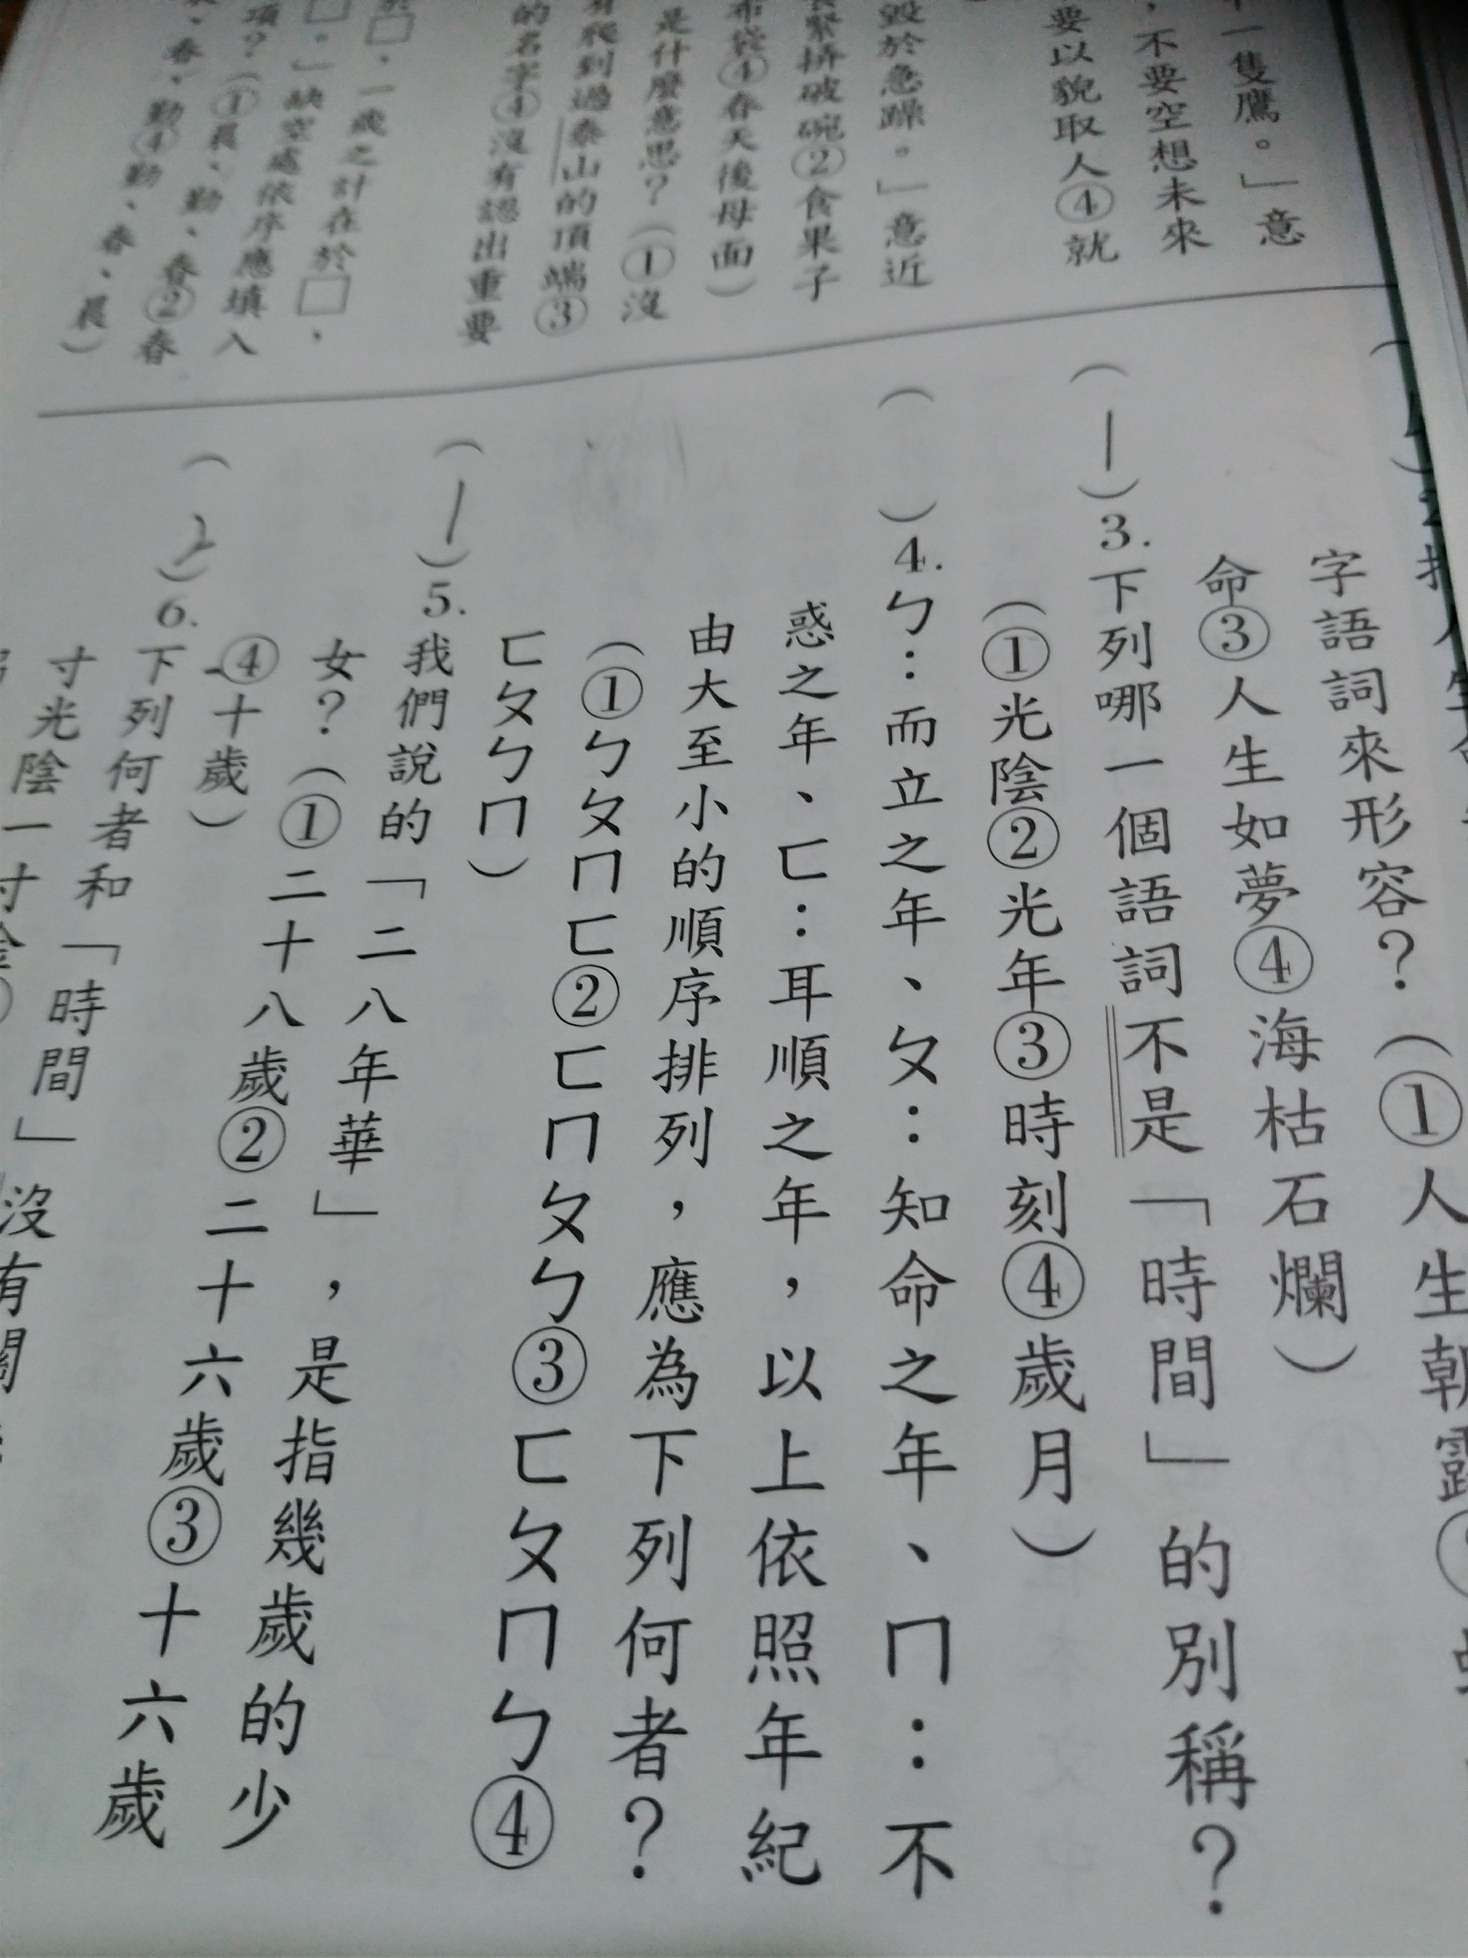 一隻鷹。」意
，不要空想未來
要以貌取人④就
毀於急躁。」意近
緊擠破碗②食果子
布袋④春天後母面)
是什麼意思？(①沒
有爬到過泰山的頂端③
的名字④沒有認出重要
□，一歲之計在於□，
□。」缺空處依序應填入
項？(①晨、勤、春②春
、春、勤④勤、春、晨)
字語詞來形容？(①人生朝露
命③人生如夢④海枯石爛)
(1)3.下列哪一個語詞不是「時間」的別稱？
(①光陰②光年③時刻④歲月)
( )4.ㄅ：而立之年、ㄆ：知命之年、ㄇ：不
惑之年、ㄈ：耳順之年，以上依照年紀
由大至小的順序排列，應為下列何者？
(①ㄅㄆㄇㄈ②ㄈㄇㄆㄅ③ㄈㄆㄇㄅ④
ㄈㄆㄅㄇ)
(1)5.我們說的「二八年華」，是指幾歲的少
女？(①二十八歲②二十六歲③十六歲
④十歲)
(2)6.下列何者和「時間」沒有關
寸光陰一寸金